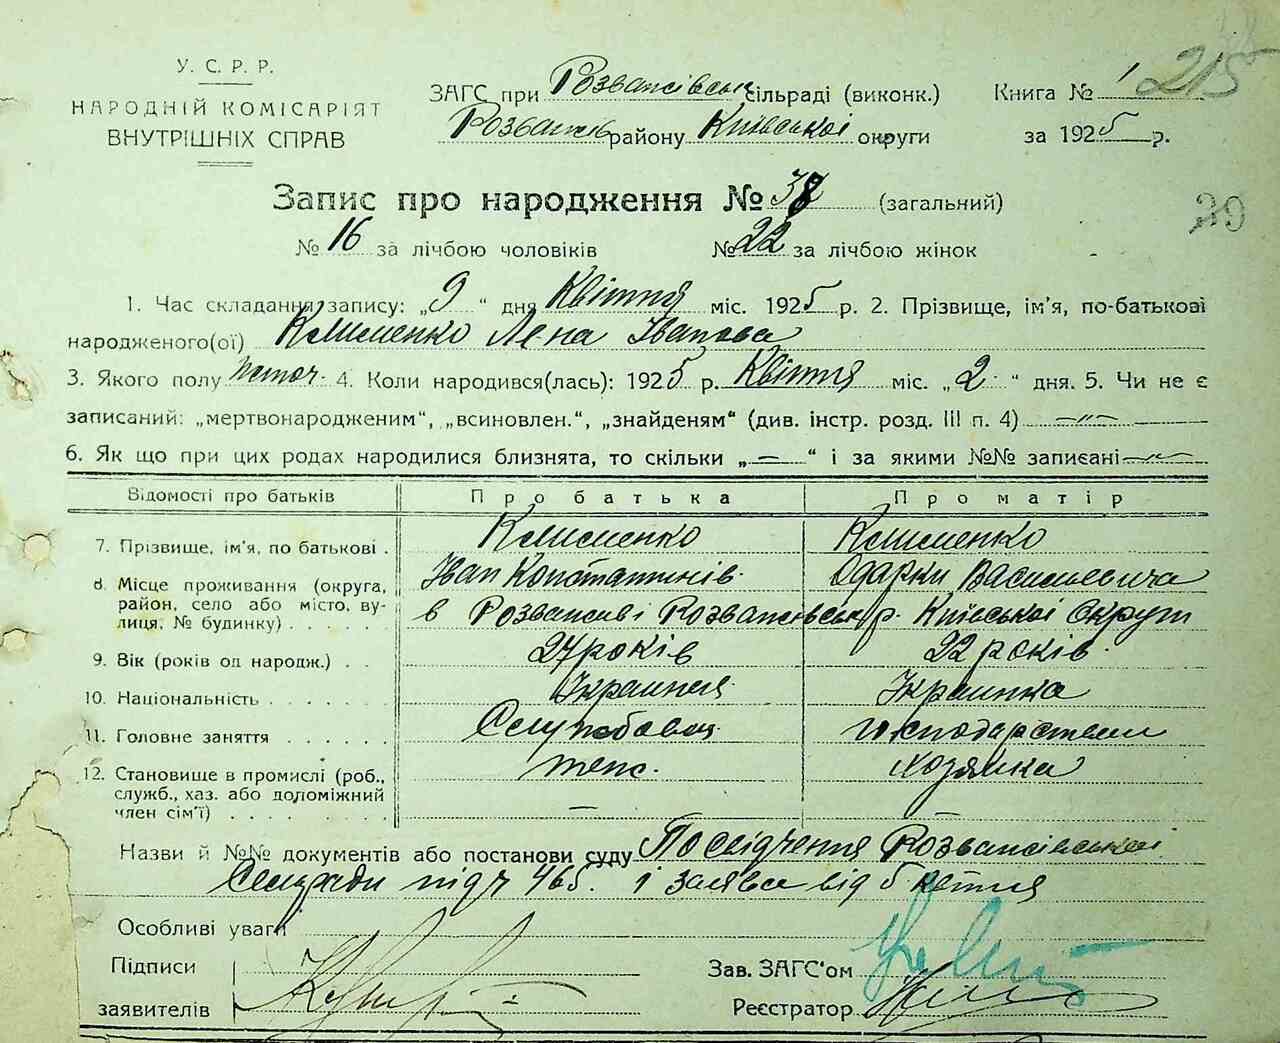 У. С. Р. Р.
НАРОДНІЙ КОМІСАРІЯТ
ВНУТРІШНІХ СПРАВ
ЗАГС при Розважівськ сільраді (виконк.) Книга № 1 215
Розважів району Київської округи за 1925 р.
Запис про народження № 38 (загальний)
39
№ 16 за лічбою чоловіків № 22 за лічбою жінок
1. Час складання запису: „9“ дня Квітня міс. 1925 р. 2. Прізвище, ім'я, по-батькові
народженого(ої) Клименко Лена Іванова
3. Якого полу жіноч. 4. Коли народився(лась): 1925 р. Квітня міс. „2“ дня. 5. Чи не є
записаний: „мертвонародженим“, „всиновлен.“, „знайденям“ (див. інстр. розд. III п. 4) —„—
6. Як що при цих родах народилися близнята, то скільки „—“ і за якими №№ записані —„—
Відомості про батьків Про батька Про матір
7. Прізвище, ім'я, по батькові . Клименко Клименко
Іван Константинів. Одарки Васильевича
8. Місце проживання (округа,
район, село або місто, ву-
лиця, № будинку) . . . . . в Розважеві Розважівськ р. Київської Округи
9. Вік (років од народж.) . . 27 років 22 років.
10. Національність . . . . . . Украинец. Украинка
11. Головне заняття . . . . . Службовец. господарством
12. Становище в промислі (роб.,
служб., хаз. або допоміжний
член сім'ї) . . . . . . . . — хозяйка
Назви й №№ документів або постанови суду Посвідчення Розважівської
Сельради під ч 465. і заява від 5 квітня
Особливі уваги
Підписи
заявителів
Зав. ЗАГС'ом
Реєстратор